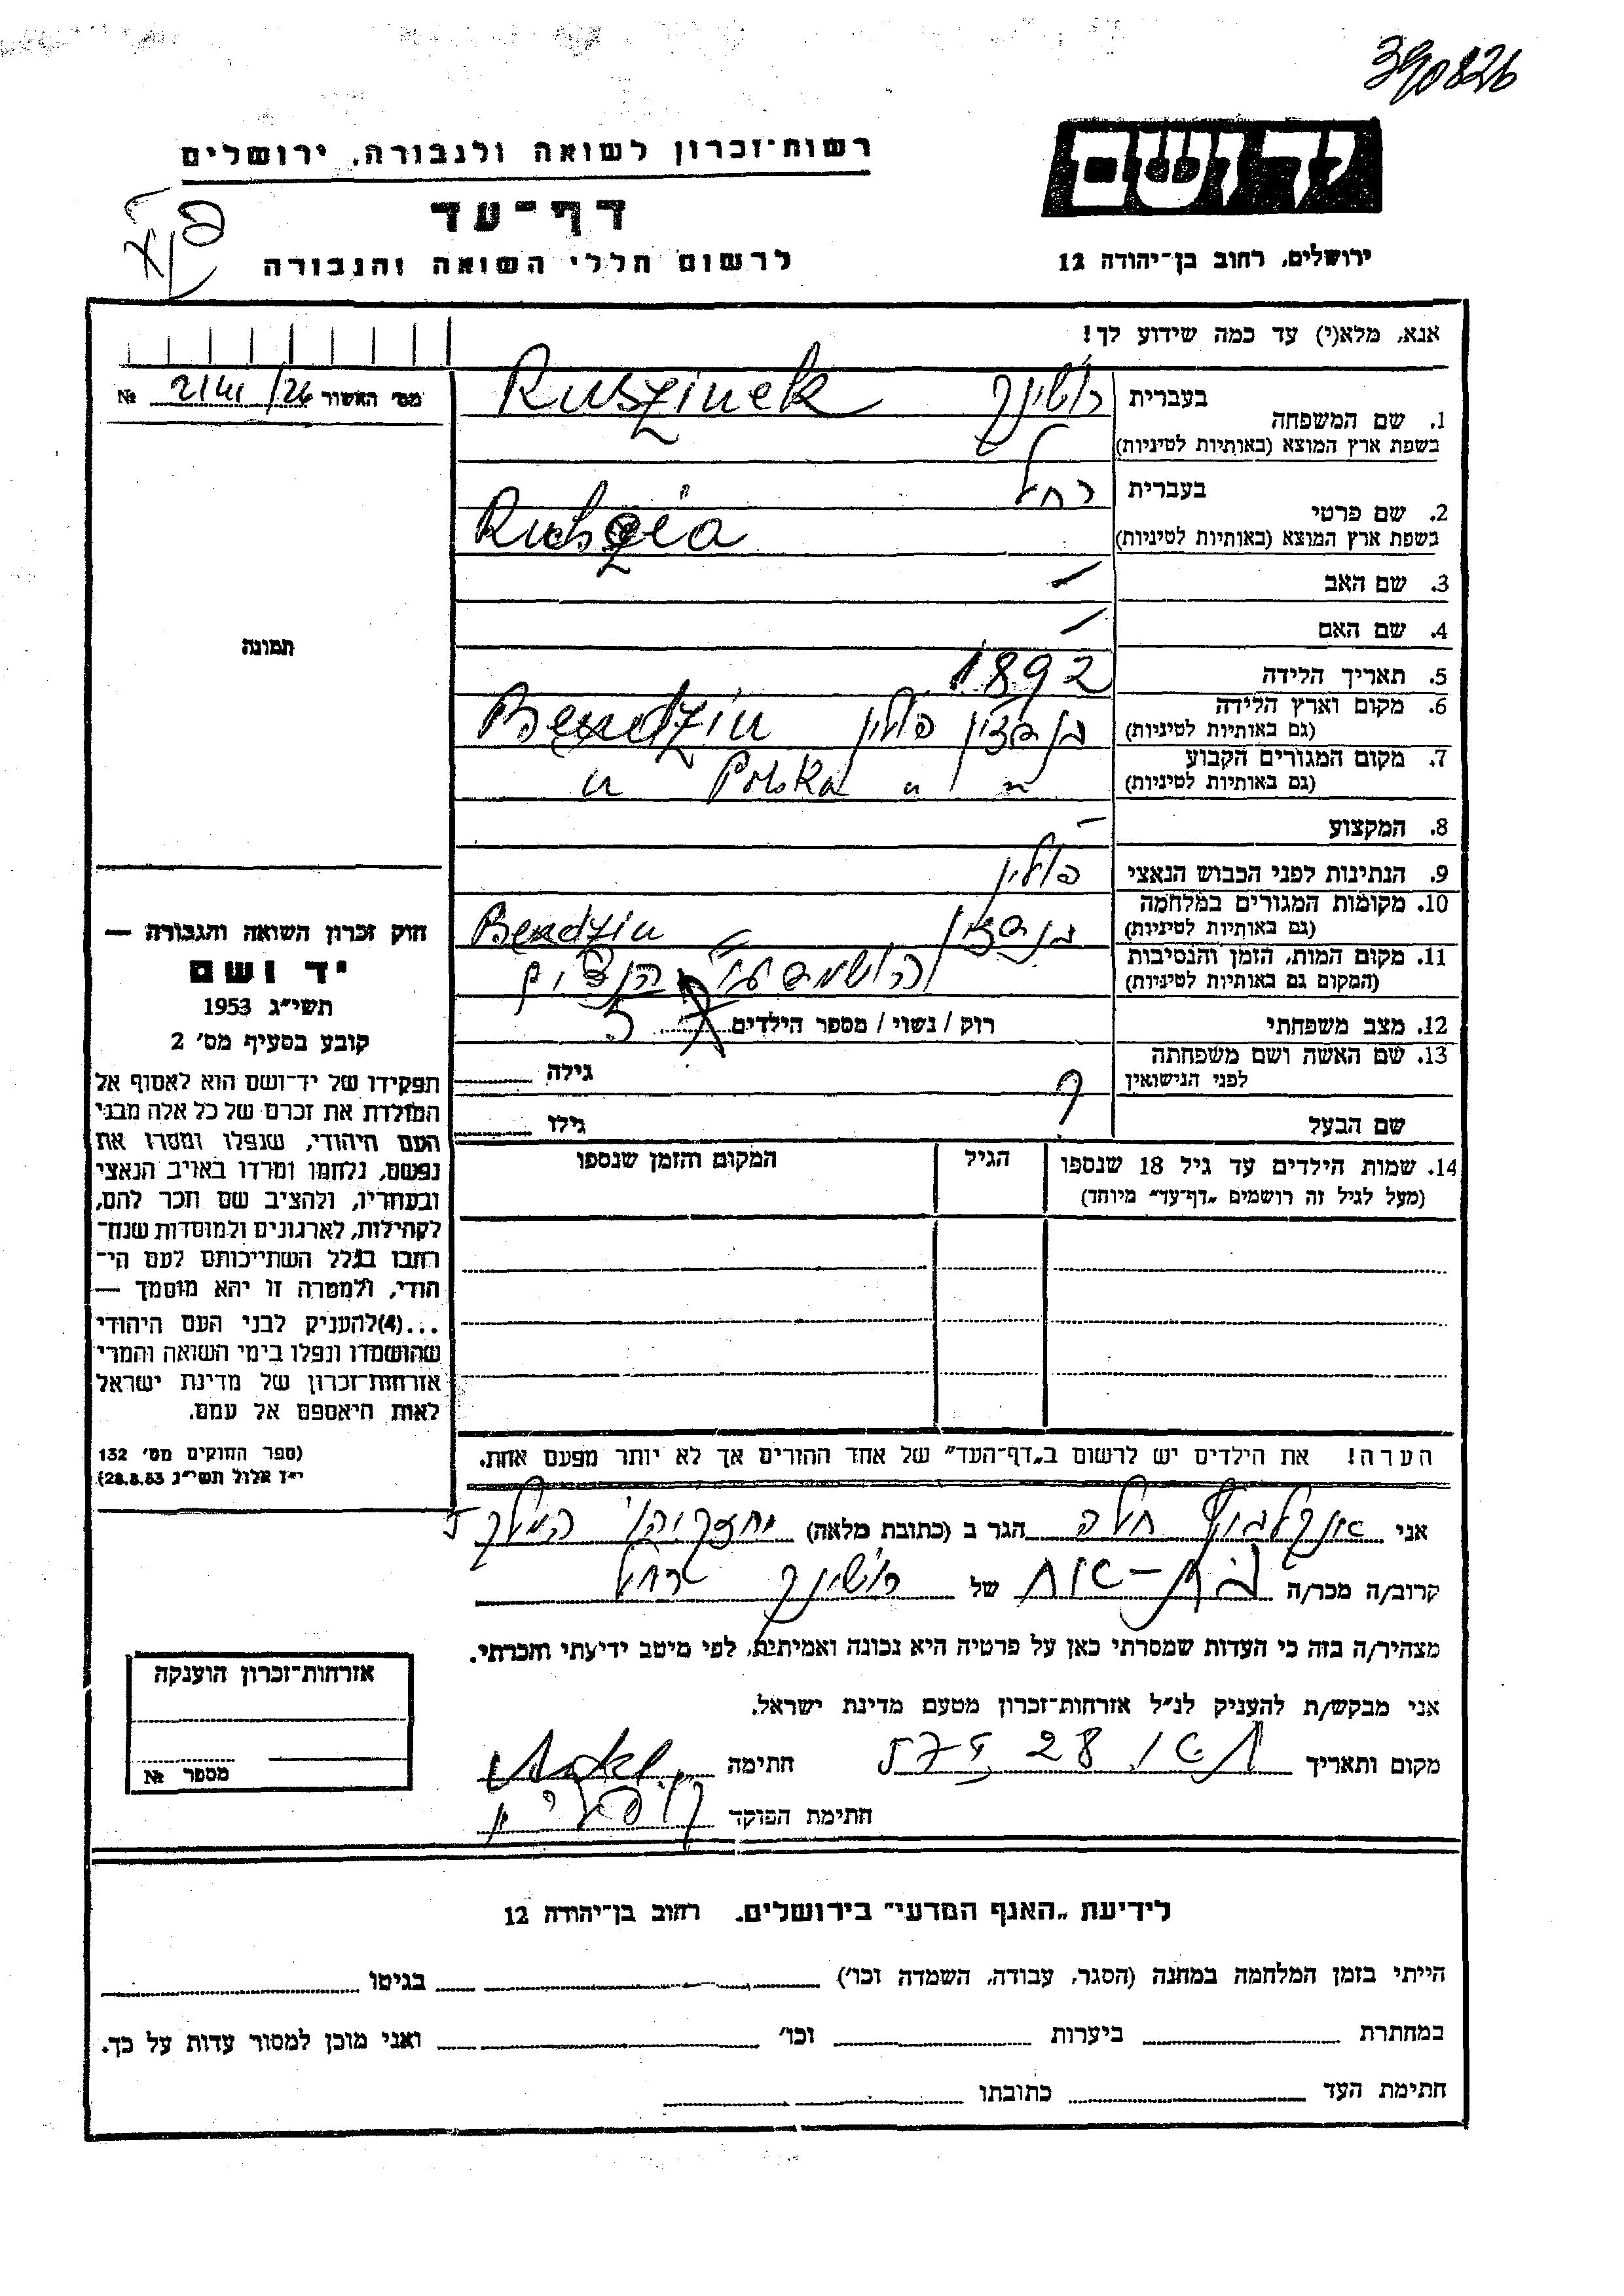 390826
יד ושם
רשות-זכרון לשואה ולגבורה, ירושלים
דף-עד
לרשום חללי השואה והגבורה
ירושלים, רחוב בן-יהודה 12
אנא, מלא(י) עד כמה שידוע לך!
מס' האשור № 2141/26
1. שם המשפחה בעברית רושינק Ruszinek
בשפת ארץ המוצא (באותיות לטיניות)
2. שם פרטי בעברית רחל
בשפת ארץ המוצא (באותיות לטיניות)
3. שם האב –
4. שם האם –
5. תאריך הלידה 1892
6. מקום וארץ הלידה בנדצין פולין Bendzin
(גם באותיות לטיניות)
7. מקום המגורים הקבוע " " Polska "
(גם באותיות לטיניות)
8. המקצוע –
9. הנתינות לפני הכבוש הנאצי פולין
10. מקומות המגורים במלחמה בנדצין Bendzin
(גם באותיות לטיניות)
11. מקום המות, הזמן והנסיבות
(המקום גם באותיות לטיניות)
12. מצב משפחתי רוק / נשוי / מספר הילדים 5
13. שם האשה ושם משפחתה גילה
לפני הנישואין
שם הבעל ? גילו
14. שמות הילדים עד גיל 18 שנספו הגיל המקום והזמן שנספו
(מעל לגיל זה רושמים „דף-עד" מיוחד)
הערה! את הילדים יש לרשום ב„דף-העד" של אחד ההורים אך לא יותר מפעם אחת.
תמונה
חוק זכרון השואה והגבורה —
יד ושם
תשי"ג 1953
קובע בסעיף מס' 2
תפקידו של יד-ושם הוא לאסוף אל
המולדת את זכרם של כל אלה מבני
העם היהודי, שנפלו ומסרו את
נפשם, נלחמו ומרדו באויב הנאצי
ובעוזריו, ולהציב שם וזכר להם,
לקהילות, לארגונים ולמוסדות שנח-
רבו בגלל השתייכותם לעם הי-
הודי, ולמטרה זו יהא מוסמך —
...(4)להעניק לבני העם היהודי
שהושמדו ונפלו בימי השואה והמרי
אזרחות-זכרון של מדינת ישראל
לאות היאספם אל עמם.
(ספר החוקים מס' 132
י"ז אלול תשי"ג 28.8.53)
אני הגר ב (כתובת מלאה) המלך 5
קרוב/ה מכר/ה בת-אח של רושינק רחל
מצהיר/ה בזה כי העדות שמסרתי כאן על פרטיה היא נכונה ואמיתית, לפי מיטב ידיעתי והכרתי.
אני מבקש/ת להעניק לנ"ל אזרחות-זכרון מטעם מדינת ישראל.
מקום ותאריך 28 חתימה
חתימת הפוקד
אזרחות-זכרון הוענקה
מספר №
לידיעת „האגף המדעי" בירושלים. רחוב בן-יהודה 12
הייתי בזמן המלחמה במחנה (הסגר, עבודה, השמדה וכו') בגיטו
במחתרת ביערות וכו' ואני מוכן למסור עדות על כך.
חתימת העד כתובתו